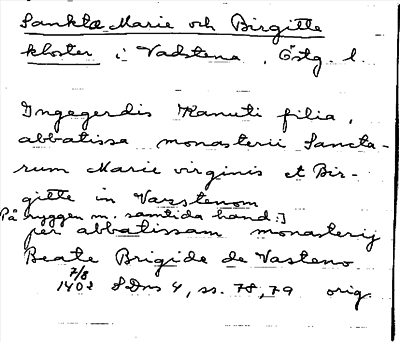 Sankta Marie och Birgitte
kloster i Vadstena, Östg. l.
Ingegerdis Kanuti filia,
abbatissa monasterii Sancta-
rum Marie virginis et Bir-
gitte in Vazstenom
På ryggen m. samtida hand:]
per abbatissam monasterij
Beate Brigide de Vasteno
7/8
1402 SDns 4, ss. 78, 79 orig.